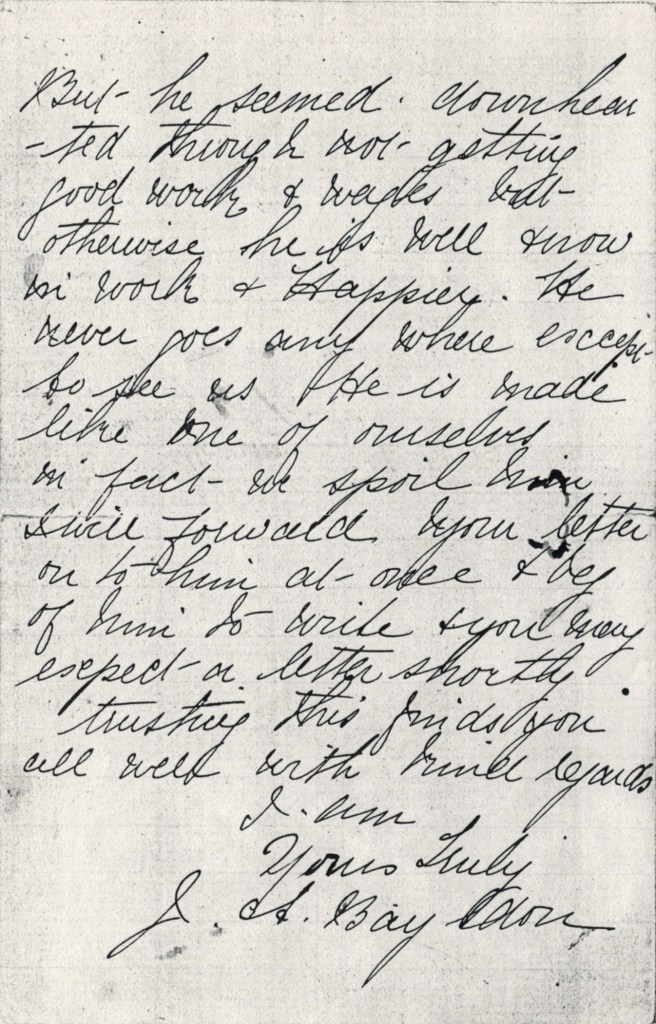 But he seemed. downhear
-ted through not getting
good work & wages but
otherwise he is well & now
in work & Happier. He
never goes any where except
to see us He is made
like one of ourselves
in fact we spoil him
I will forward your letter
on to him at once & beg
of him to write & you may
expect a letter shortly
trusting this finds you
all well with kind regards
I. am
Yours Truly
J. A. Bayldon